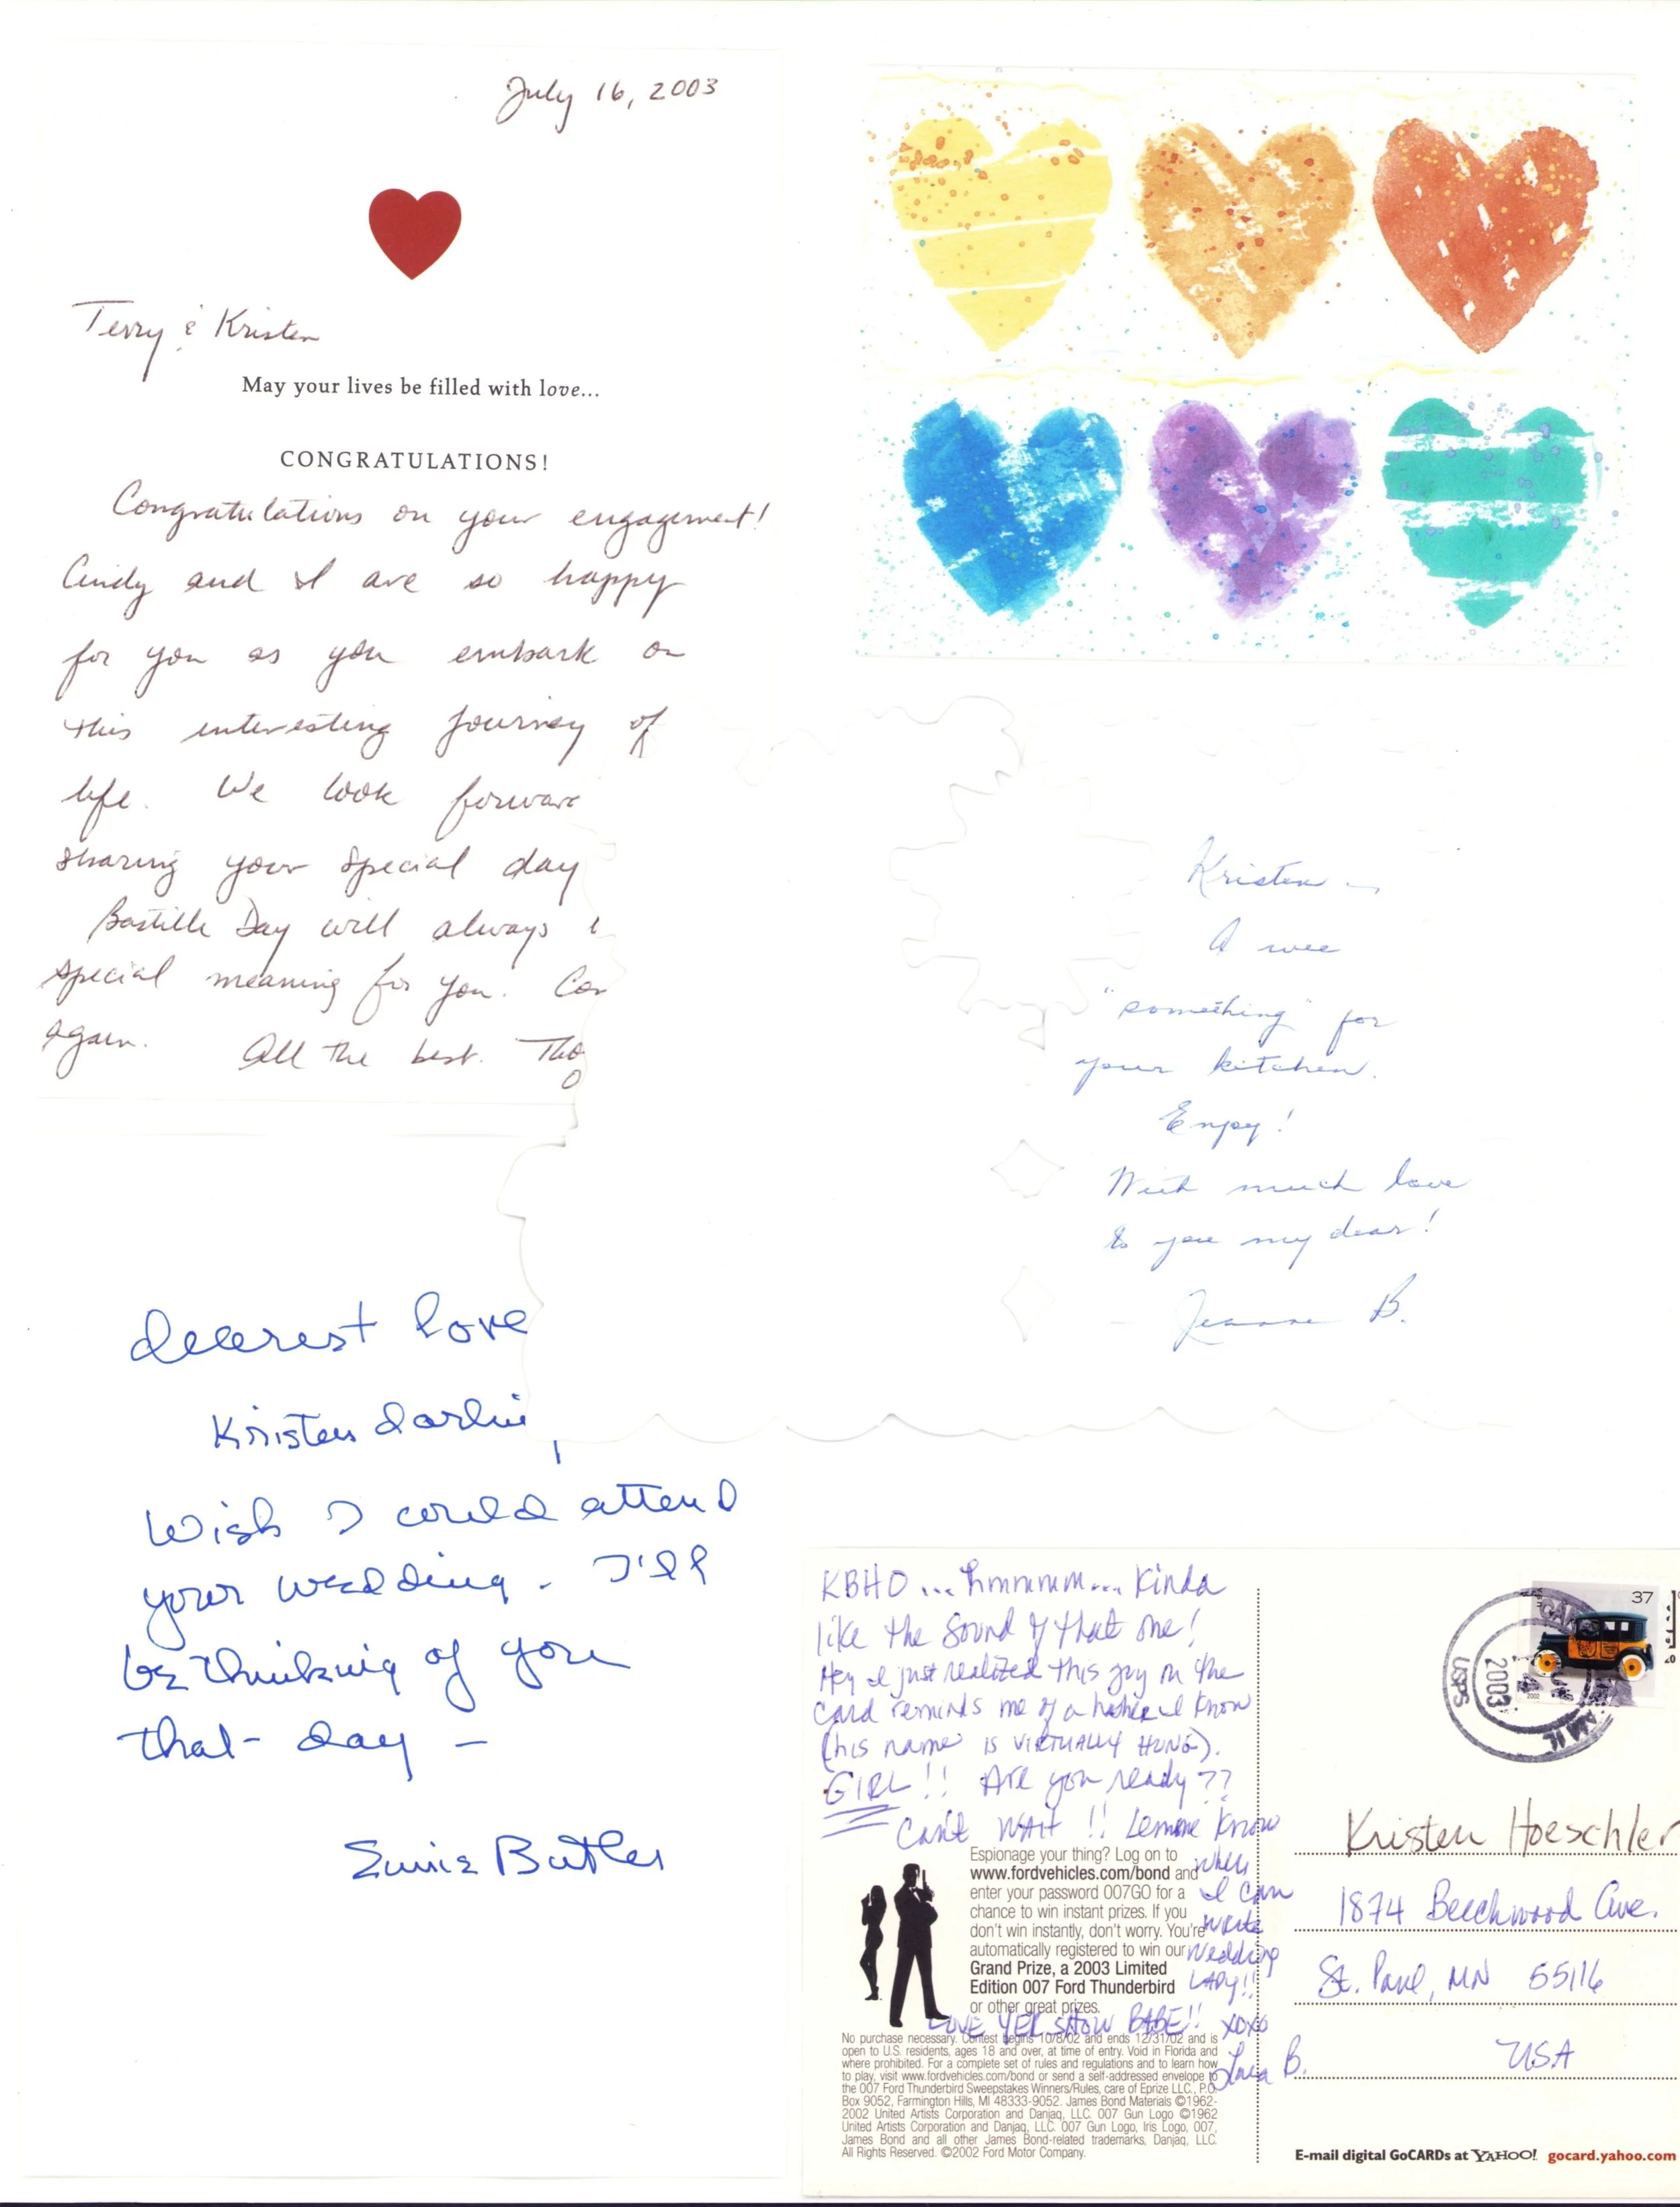 July 16, 2003
Terry & Kristen
May your lives be filled with love...
CONGRATULATIONS!
Congratulations on your engagement!
Cindy and I are so happy
for you as you embark on
this interesting journey of
life. We look forwar
sharing your special day
Bastille Day will always
special meaning for you. Con
again. All the best. Tho
Kristen –
A wee
"something" for
your kitchen.
Enjoy!
With much love
to you my dear!
Jeanne B.
dearest love
Kristen darlin
Wish I could attend
your wedding. I'll
be thinking of you
that day –
Butler
KBHO... hmmmm... kinda
like the sound of that one!
Hey I just realized this guy on the
card reminds me of a I know
(his name is VIRTUALLY HUNG).
GIRL!! Are you ready??
Can't WAIT!! Lemme know
when
I can
write
Wedding
LADY!!
LOVE YER SHOW BABE!! XOXO
B.
Espionage your thing? Log on to
www.fordvehicles.com/bond and
enter your password 007GO for a
chance to win instant prizes. If you
don't win instantly, don't worry. You're
automatically registered to win our
Grand Prize, a 2003 Limited
Edition 007 Ford Thunderbird
or other great prizes.
No purchase necessary. Contest begins 10/8/02 and ends 12/31/02 and is
open to U.S. residents, ages 18 and over, at time of entry. Void in Florida and
where prohibited. For a complete set of rules and regulations and to learn how
to play, visit www.fordvehicles.com/bond or send a self-addressed envelope to
the 007 Ford Thunderbird Sweepstakes Winners/Rules, care of Eprize LLC., P.O.
Box 9052, Farmington Hills, MI 48333-9052. James Bond Materials ©1962-
2002 United Artists Corporation and Danjaq, LLC. 007 Gun Logo ©1962
United Artists Corporation and Danjaq, LLC. 007 Gun Logo, Iris Logo, 007,
James Bond and all other James Bond-related trademarks, Danjaq, LLC.
All Rights Reserved. ©2002 Ford Motor Company.
37
2002
2003
USPS
Kristen Hoeschler
1874 Beechwood Ave.
St. Paul, MN 55116
USA
E-mail digital GoCARDs at YAHOO! gocard.yahoo.com